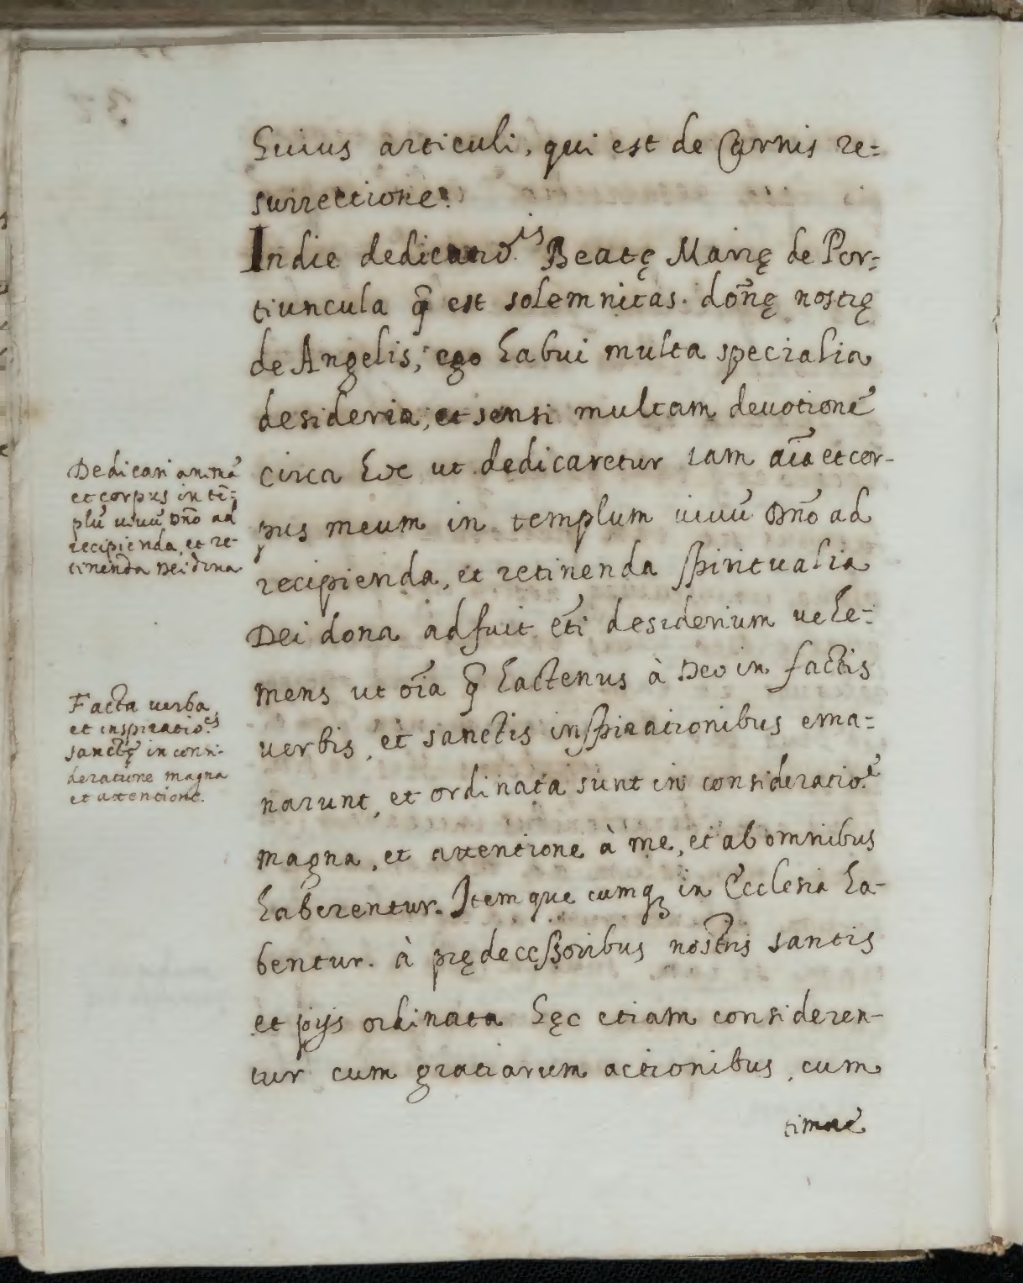 huius articuli, qui est de Carnis re=
surrectione.
In die dedicationis Beatę Marię de Por=
tiuncula q̃ est solemnitas. dom̃ę nostrę
de Angelis, ego habui multa specialia
desideria, et sensi multam deuotionẽ
circa hoc ut dedicaretur iam aĩa et cor-
pus meum in templum uiuũ Dño ad
recipienda, et retinenda spiritualia
Dei dona adfuit etĩ desiderium uehe=
mens ut oĩa q̃ hactenus à Deo in factis
uerbis, et sanctis inspirationibus ema=
narunt, et ordinata sunt in consideratio.ẽ
magna, et attentione à me, et ab omnibus
haberentur. Item que cumq; in Ecclesia ha-
bentur. à prędecessoribus nostris santis
et pijs ordinata hęc etiam consideren-
tur cum gratiarum actionibus, cum
timore
Dedicari animã
et corpus in tẽ=
plũ uiuũ Dño ad
recipienda, et re-
tinenda Dei dona
Facta uerba
et inspiratio.es
sanctę in consi-
deratione magna
et attentione.